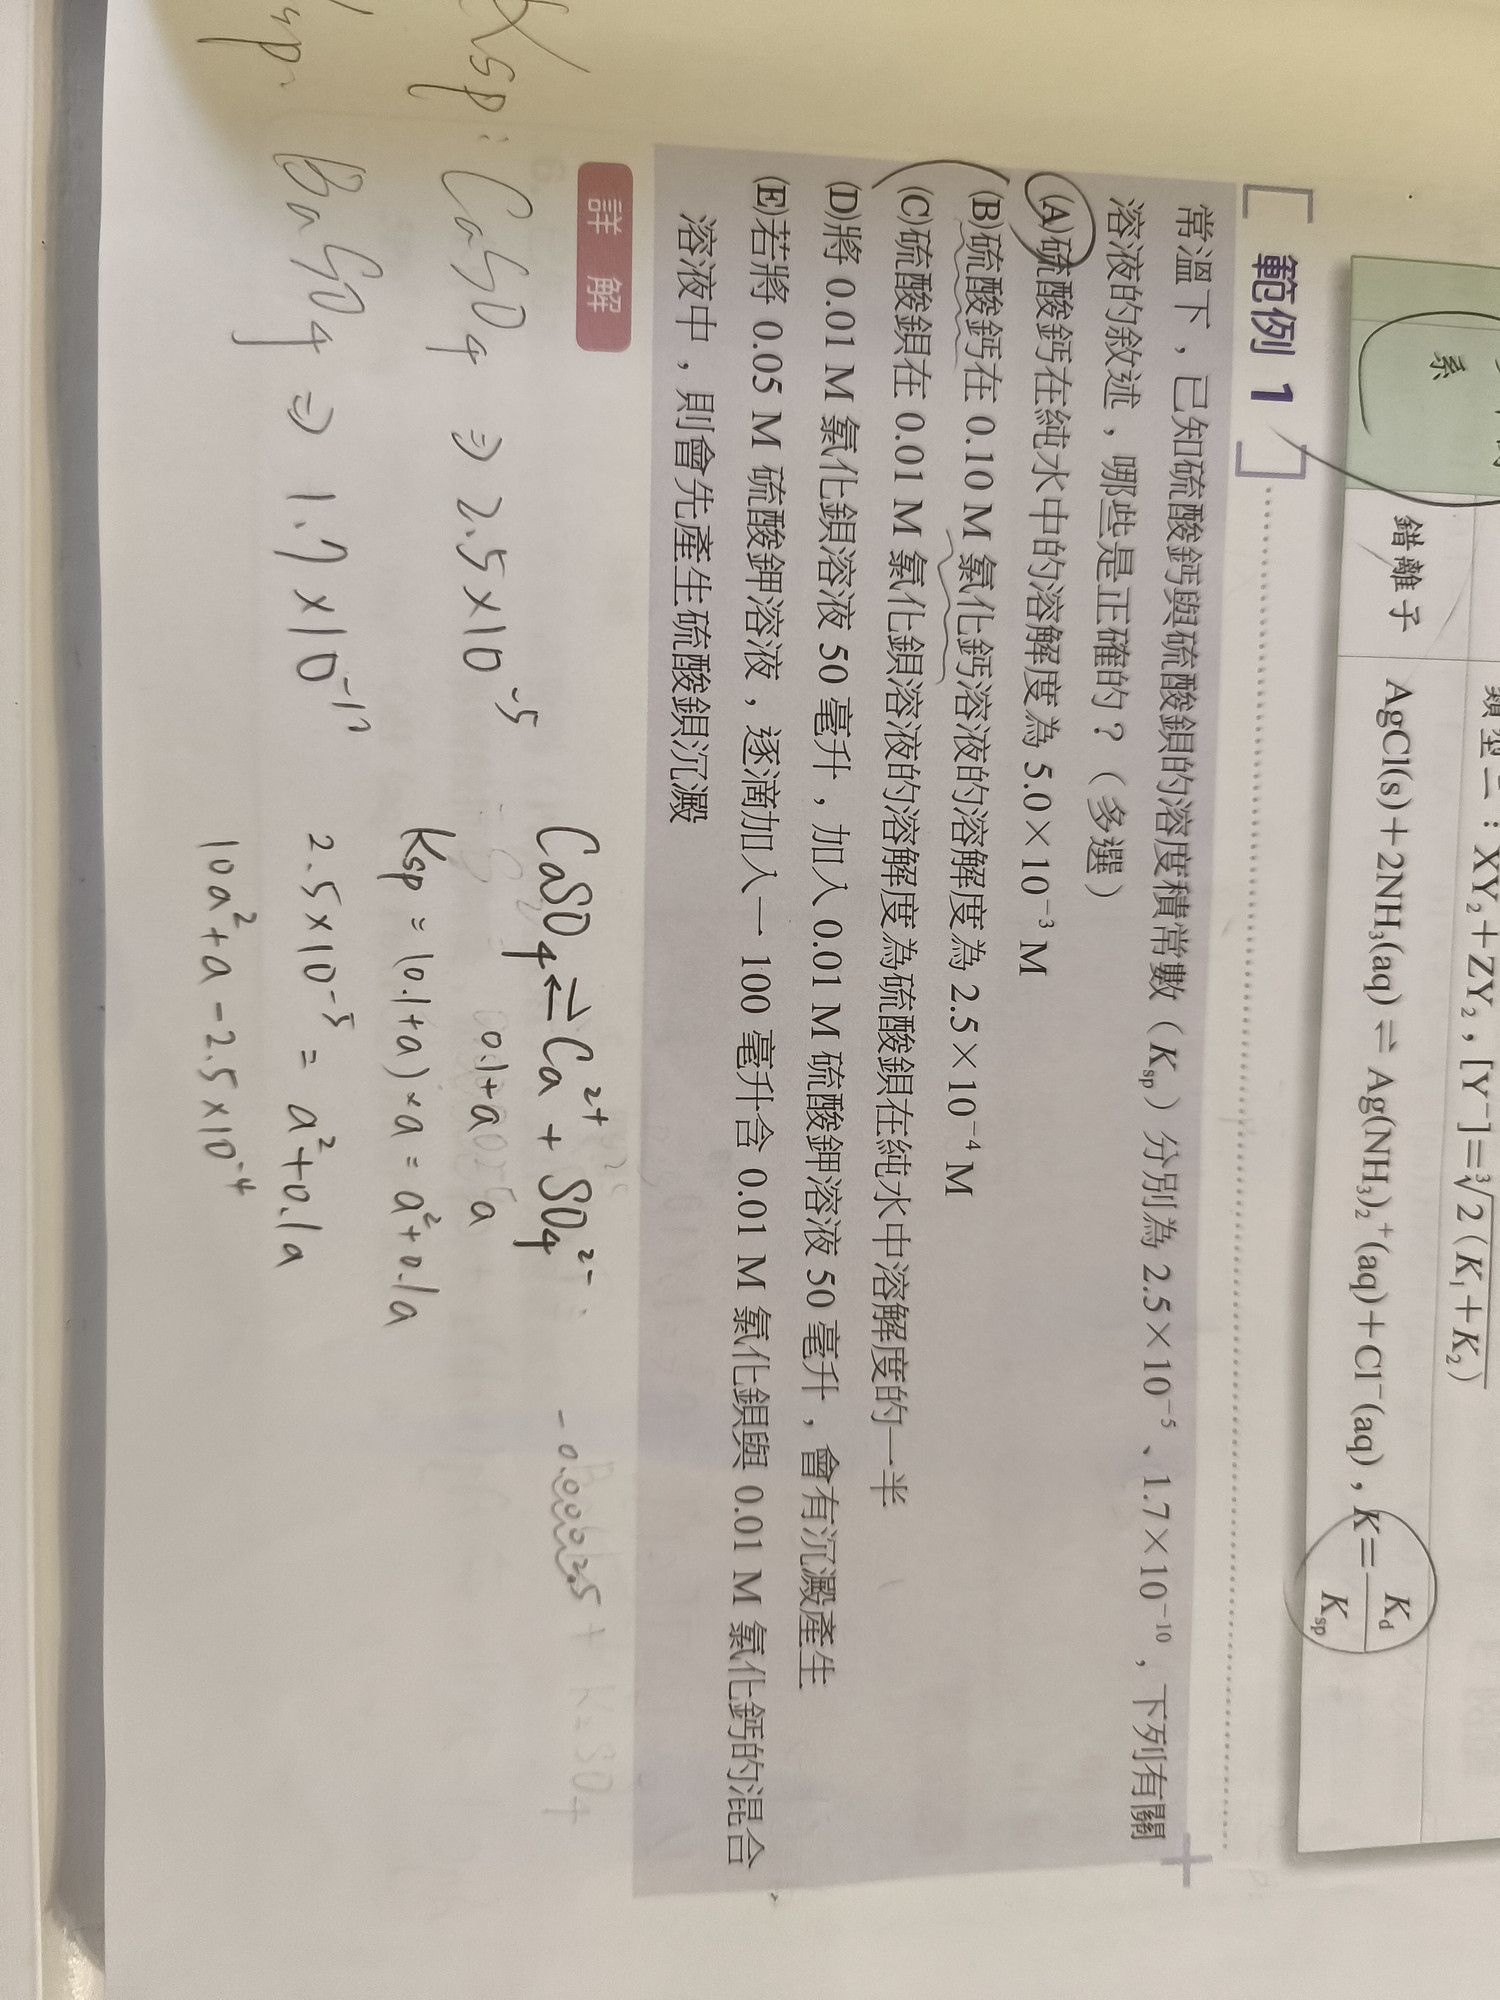 類型三：XY₂+ZY₂，[Y⁻]=³√2(K₁+K₂)
系
錯離子
AgCl(s)+2NH₃(aq)⇌Ag(NH₃)₂⁺(aq)+Cl⁻(aq)，K=Kd/Ksp
範例 1
常溫下，已知硫酸鈣與硫酸鋇的溶度積常數（Ksp）分別為 2.5×10⁻⁵、1.7×10⁻¹⁰，下列有關
溶液的敘述，哪些是正確的？（多選）
(A)硫酸鈣在純水中的溶解度為 5.0×10⁻³ M
(B)硫酸鈣在 0.10 M 氯化鈣溶液的溶解度為 2.5×10⁻⁴ M
(C)硫酸鋇在 0.01 M 氯化鋇溶液的溶解度為硫酸鋇在純水中溶解度的一半
(D)將 0.01 M 氯化鋇溶液 50 毫升，加入 0.01 M 硫酸鉀溶液 50 毫升，會有沉澱產生
(E)若將 0.05 M 硫酸鉀溶液，逐滴加入一 100 毫升含 0.01 M 氯化鋇與 0.01 M 氯化鈣的混合
溶液中，則會先產生硫酸鋇沉澱
詳 解
Ksp: CaSO₄ ⇒ 2.5×10⁻⁵
BaSO₄ ⇒ 1.7×10
CaSO₄⇌Ca²⁺+SO₄²⁻
0.1+a a
Ksp=(0.1+a)×a=a²+0.1a
2.5×10⁻⁵=a²+0.1a
10a²+a-2.5×10⁻⁴